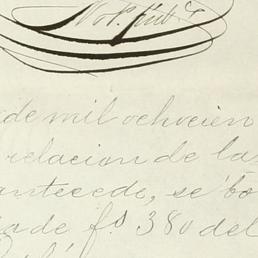 Not. púb.co
de mil ochocien
relacion de las
antecede, se bo
ca de fs 380 del